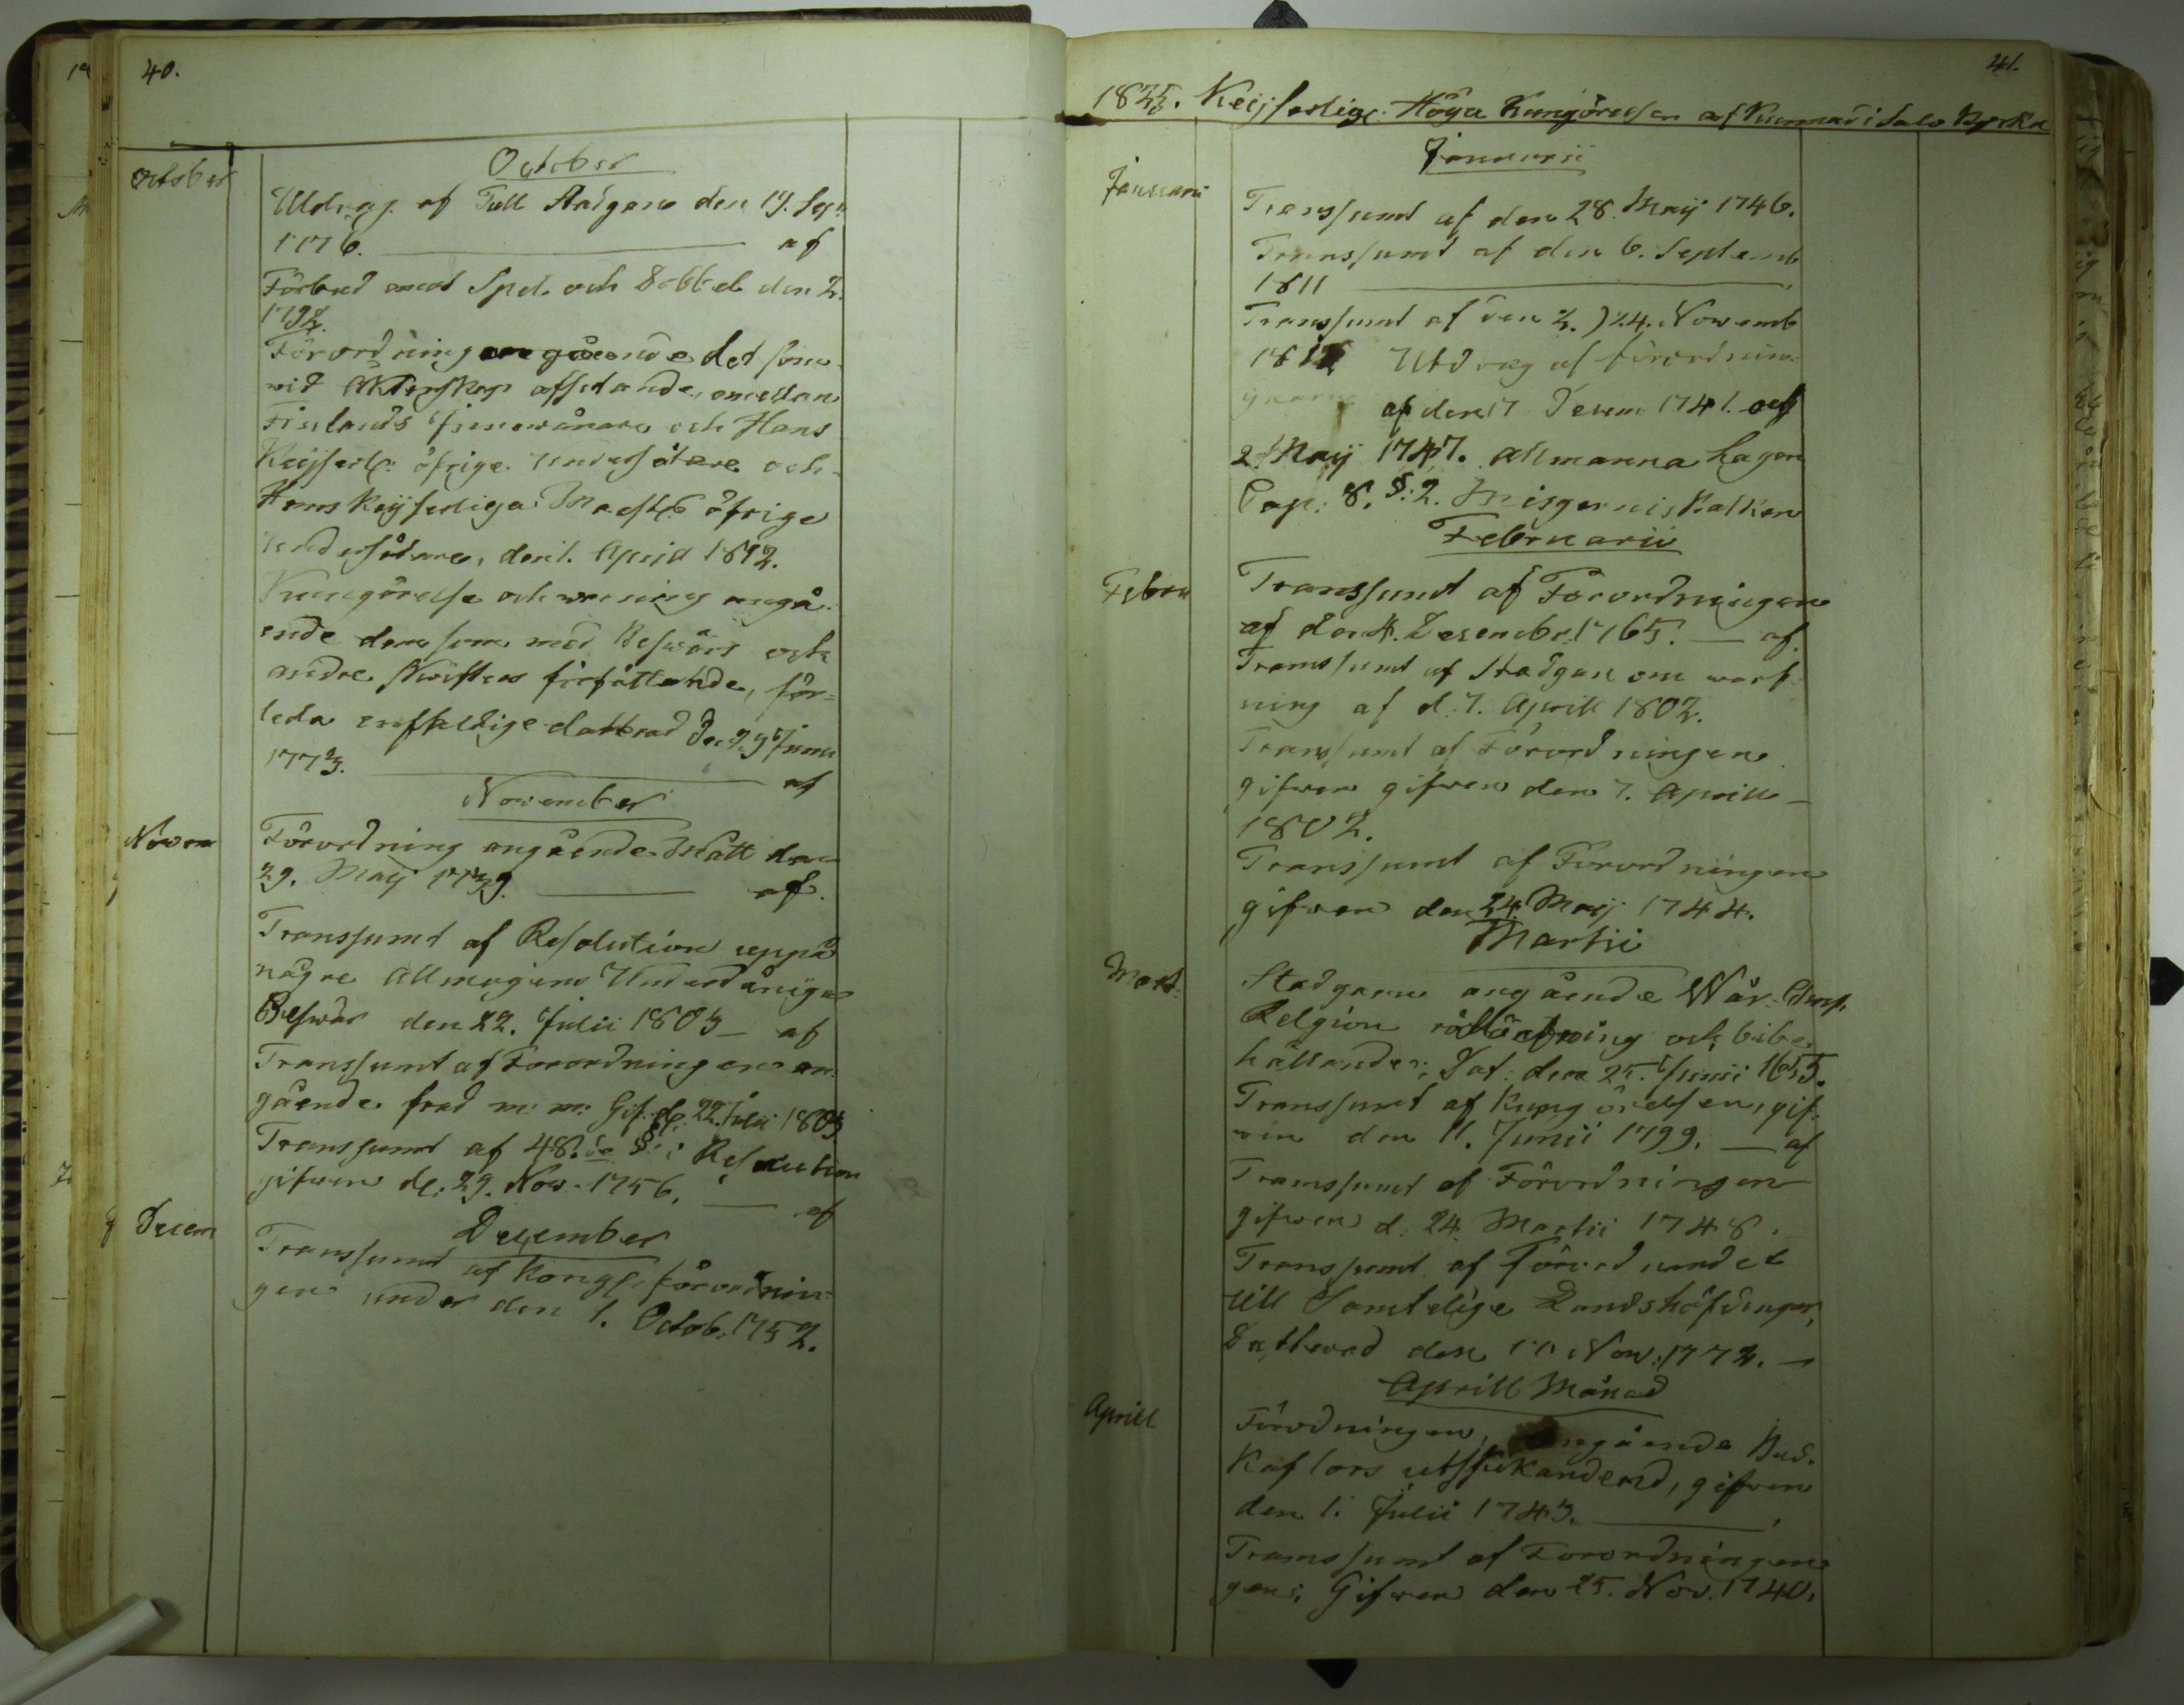 40.
October
October
Utdrag af Tull Stadgan den 19. Sep:
1776. af
Förbud emot Spel och Dobbel den 2.
1792.
Förordning angående det som
wid Äktenskap afslutande, emellan
Finlands Innewånare och Hans
Keijserl: öfrige Undersåtare och
Hans Keijserliga Maesttz öfrige
undersåtare, den 1. Aprill 1812.
Kungörelse och warning angå
ende dem som med Beswärs och
andre Skrifters författande, för=
leda enfaldige datterad den 29 Junii
1773. af
November
Novem
Förordning angående Mått den
29. Maij 1739. af.
Transsumt af Resolution uppå
någre Allmogens Underdåniga
Beswär den 22. Julii 1803 af
Transsumt af Forordningen an
gående fred m: m: Gif: d: 22. Julii 1803
Transsumt af 48. de §: i Resolution
gifwen d: 29. Nov. 1756, af
Decem
December
Transsumt af Kongl. förordnin
gen under den 1. Octob: 1752.
41.
1835. Keijserlige Höga Kungörelsen af Kunnad i Salo Kyrka
Januarii
Januari
Transsumt af den 28. Maij 1746.
Transsumt af den 6. Septemb
1811
Transsumt af den 24. Novemb
1812 Utdrag af förordnin
garne af den 17 Decem 1741. och
2. Maij 1747. Allmänna Lagen
Cap: 8. §: 2. Misgernis Balken
Februarii
Febru
Transsumt af Förordningen
af den 4. Decembr. 1765. af.
Transsumt af Stadgan om warf
ning af d. 7. Aprill 1802.
Transsumt af Förordningen
gifwen gifwen den 7. Aprill
1802.
Transsumt af Förordningen
gifwen den 24. Maij 1744.
Martii
Mart.
Stadgarne angående Wår
Relgion och bibe
hållande; Dat: den 25. Junii 1655.
Transsumt af Kungörelsen, gif
wen den 11. Junii 1799. af
Transsumt af Förordningen
gifwen d: 24. Martii 1748.
Transsumt af
till Samtelige Landshöfdingar,
Datterad den 17 Nov: 1772.
Aprill Månad
Aprill
Förodningen, angående Bud.
Kaflors utskickanderd, gifwen
den 1. Julii 1743.
Transsumt af Forordningen
gens, Gifwen den 25. Nov. 1740.